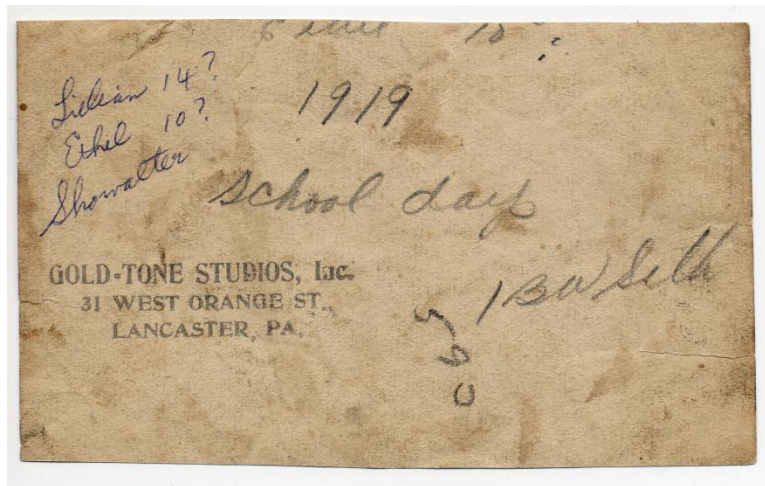 Ethel 10?
Lillian 14?
Ethel 10?
Showalter
1919
School days
GOLD-TONE STUDIOS, Inc.
31 WEST ORANGE ST.,
LANCASTER, PA.
1 BW